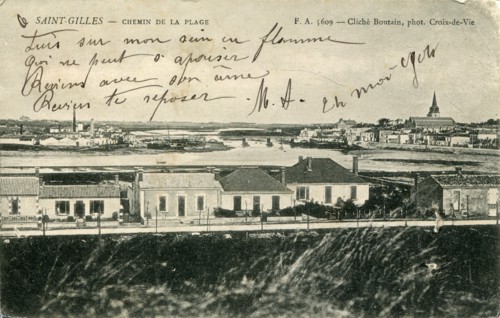 SAINT-GILLES — CHEMIN DE LA PLAGE
F. A. 5609 — Cliché Boutain, phot. Croix-de-Vie
sur mon sein en flamme
qui ne peut s'apaiser
Reviens avec son âme
Reviens te reposer
M. A.